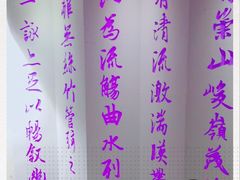 崇山峻嶺茂
清流激湍暎
為流觴曲水列
雖無絲竹管弦之
一詠亦足以暢敘幽